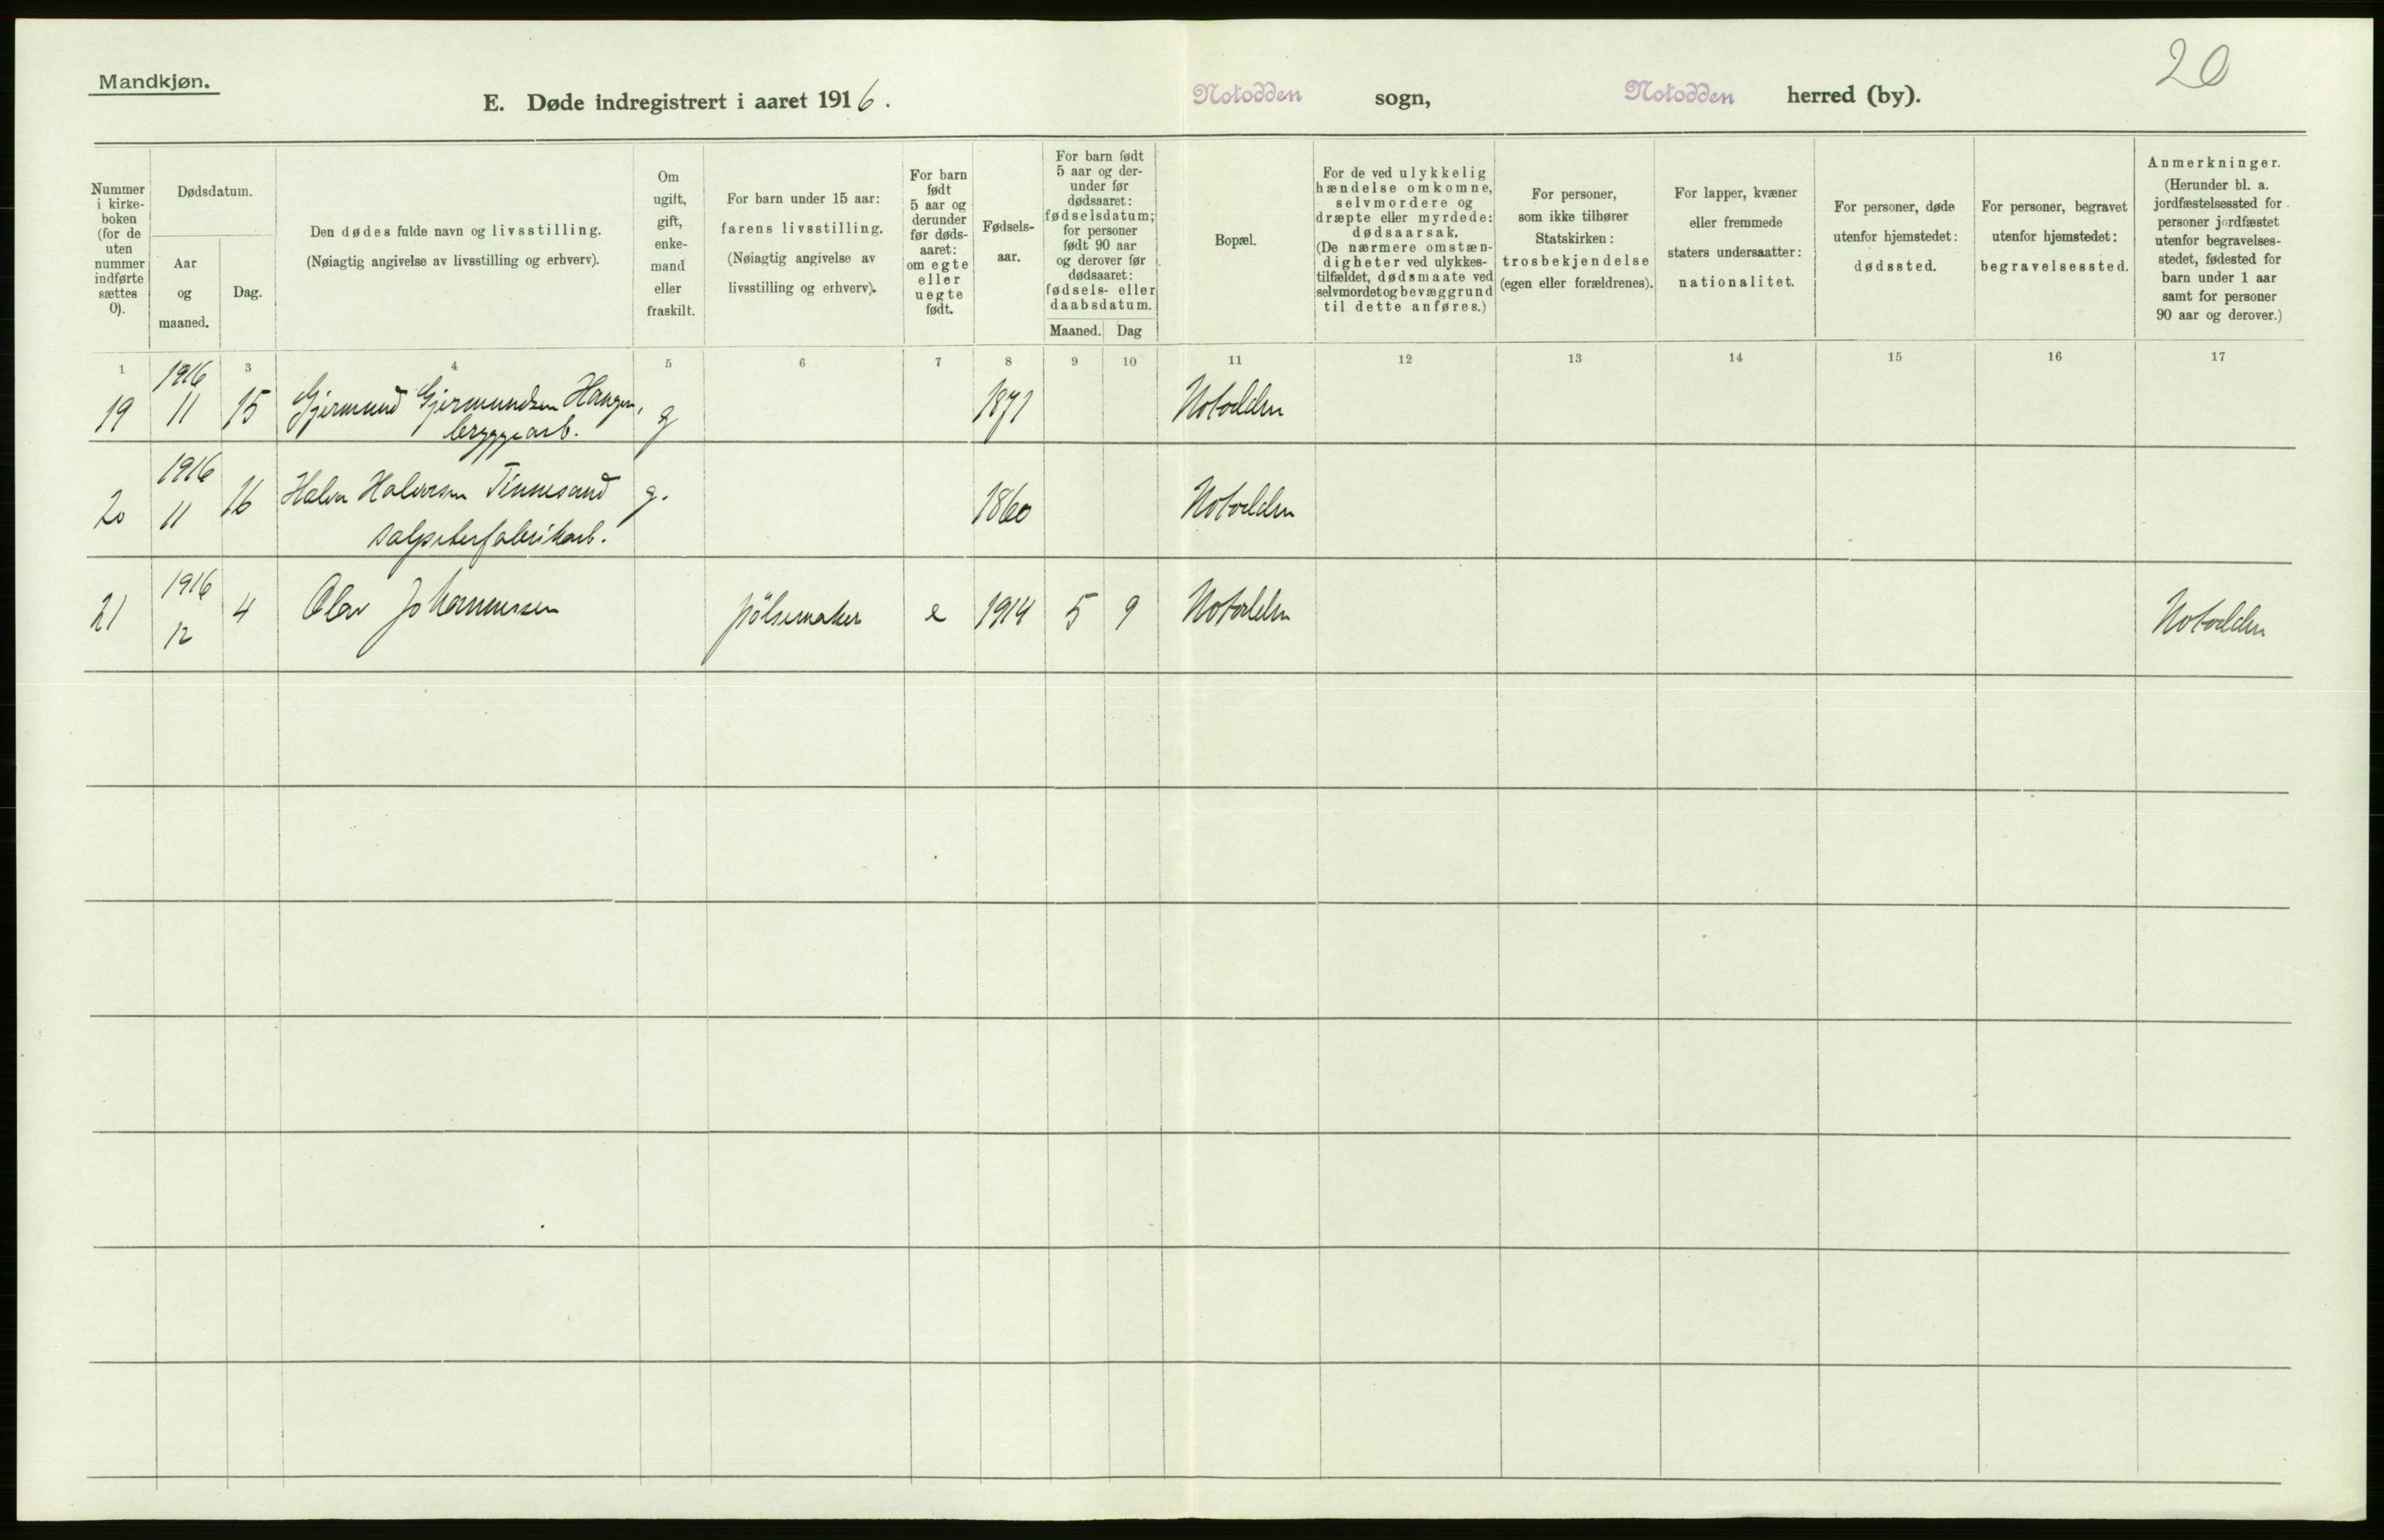 Mandkjøn.
20
E. Døde indregistrert i aaret 1916.
Notodden sogn,
Notodden herred (by).
Nummer i kirke-boken (for de uten nummer indførte sættes 0).
Dødsdatum.
Aar og maaned.
Dag.
Den dødes fulde navn og livsstilling.
(Nøiagtig angivelse av livsstilling og erhverv).
Om ugift, gift, enke-mand eller fraskilt.
For barn under 15 aar:
farens livsstilling.
(Nøiagtig angivelse av
livsstilling og erhverv).
For barn født 5 aar og derunder før døds-aaret: om egte eller uegte født.
Fødsels-aar.
For barn født 5 aar og der-under før dødsaaret: fødselsdatum; for personer født 90 aar og derover før dødsaaret: fødsels- eller daabsdatum.
Maaned.
Dag
Bopæl.
For de ved ulykkelig hændelse omkomne, selvmordere og dræpte eller myrdede: dødsaarsak.
(De nærmere omstæn-digheter ved ulykkes-tilfældet, dødsmaate ved selvmordet og bevæggrund til dette anføres.)
For personer, som ikke tilhører Statskirken: trosbekjendelse (egen eller forældrenes).
For lapper, kvæner eller fremmede staters undersaatter: nationalitet.
For personer, døde utenfor hjemstedet: dødssted.
For personer, begravet utenfor hjemstedet: begravelsessted.
Anmerkninger.
(Herunder bl. a. jordfæstelsessted for personer jordfæstet utenfor begravelses-stedet, fødested for barn under 1 aar samt for personer 90 aar og derover.)
1 3 4 5 6 7 8 9 10 11 12 13 14 15 16 17
19 1916 11 15 Gjermund Gjermundsen Haugen, g 1871 Notodden
bryggearb.
20 1916 11 16 Halvor Halvorsen Tinnesand g. 1860 Notodden
salpeterfabrikarb.
21 1916 12 4 Olav Johannessen pölsemaker e 1914 5 9 Notodden Notodden